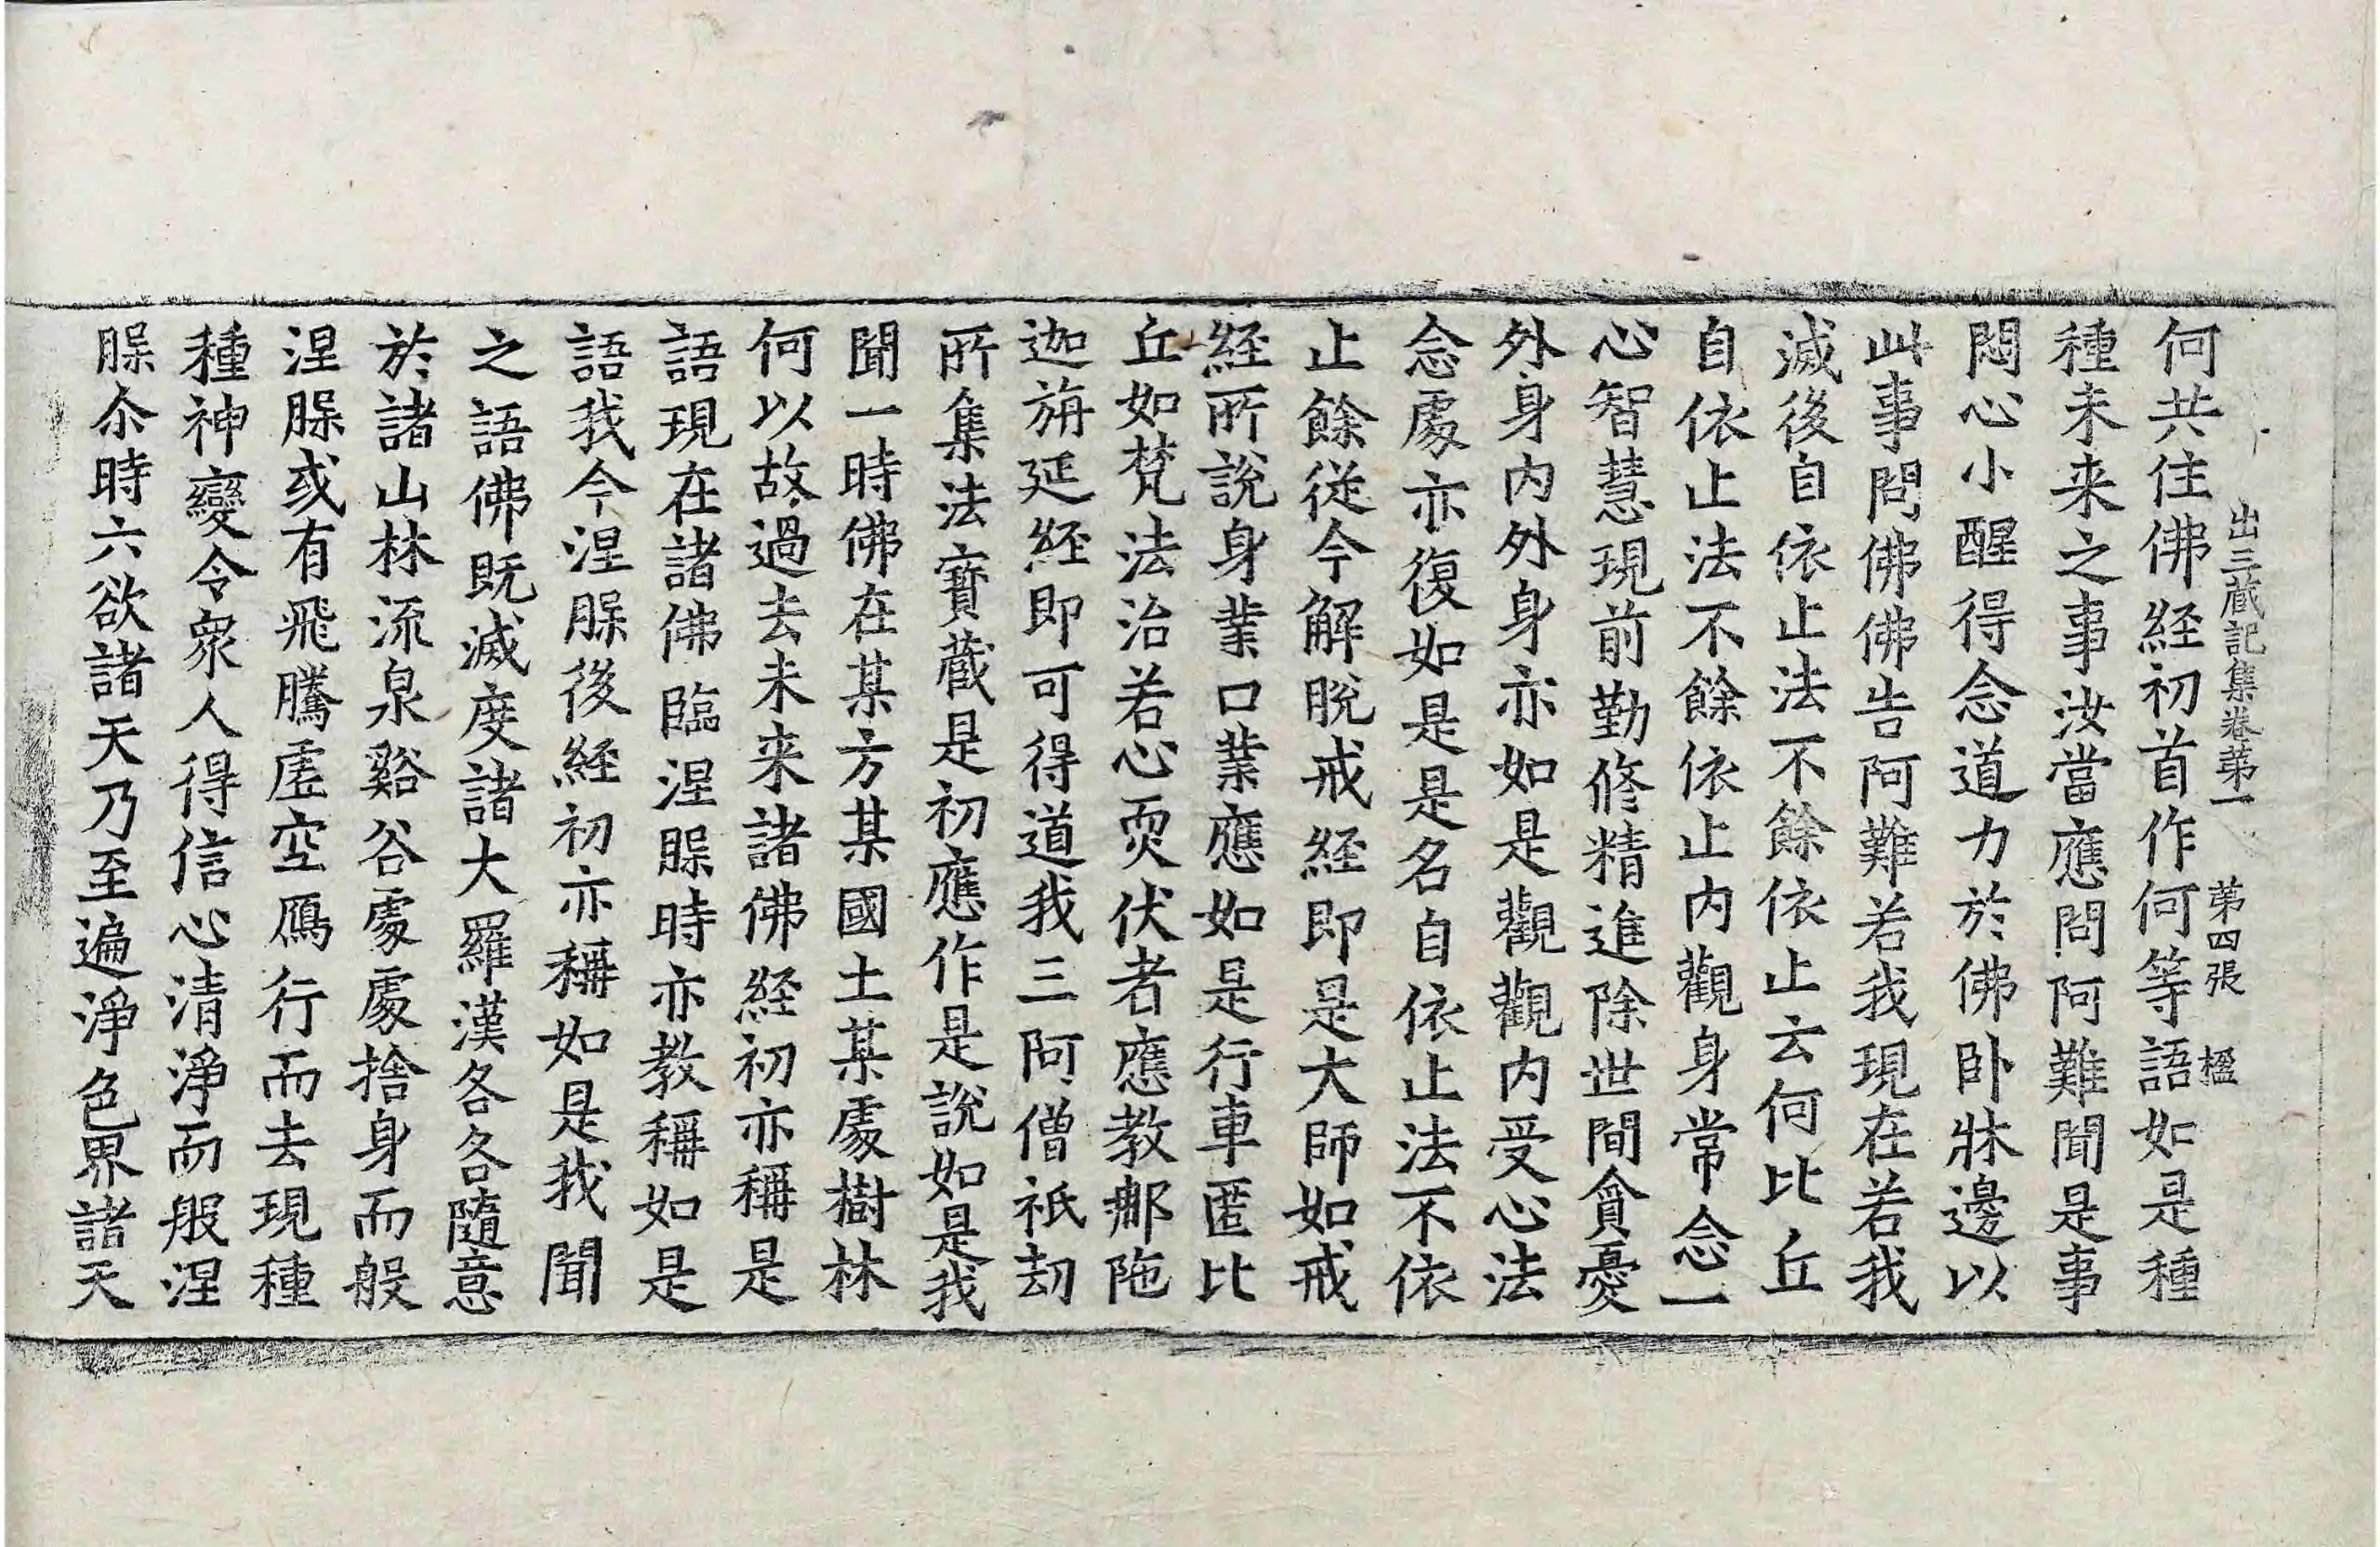 出三藏記集卷苐一　苐四張　楹
何共住佛経初首作何等語如是種
種未来之事汝當應問阿難聞是事
悶心小醒得念道力於佛卧牀邊以
此事問佛佛告阿難若我現在若我
滅後自依止法不餘依止云何比丘
自依止法不餘依止内觀身常念一
心智慧現前勤修精進除世間貪憂
外身内外身亦如是觀觀内受心法
念處亦復如是是名自依止法不依
止餘從今解脫戒経即是大師如戒
経所說身業口業應如是行車匿比
丘如梵法治若心耎伏者應教𨚗陁
迦旃延経即可得道我三阿僧祇劫
所集法寶藏是初應作是說如是我
聞一時佛在某方某國土某處樹林
何以故過去未来諸佛経初亦稱是
語現在諸佛臨涅槃時亦教稱如是
語我今涅槃後経初亦稱如是我聞
之語佛既滅度諸大羅漢各各隨意
於諸山林流泉谿谷處處捨身而般
涅槃或有飛騰虛空鴈行而去現種
種神變令衆人得信心清淨而般涅
槃尒時六欲諸天乃至遍淨色界諸天